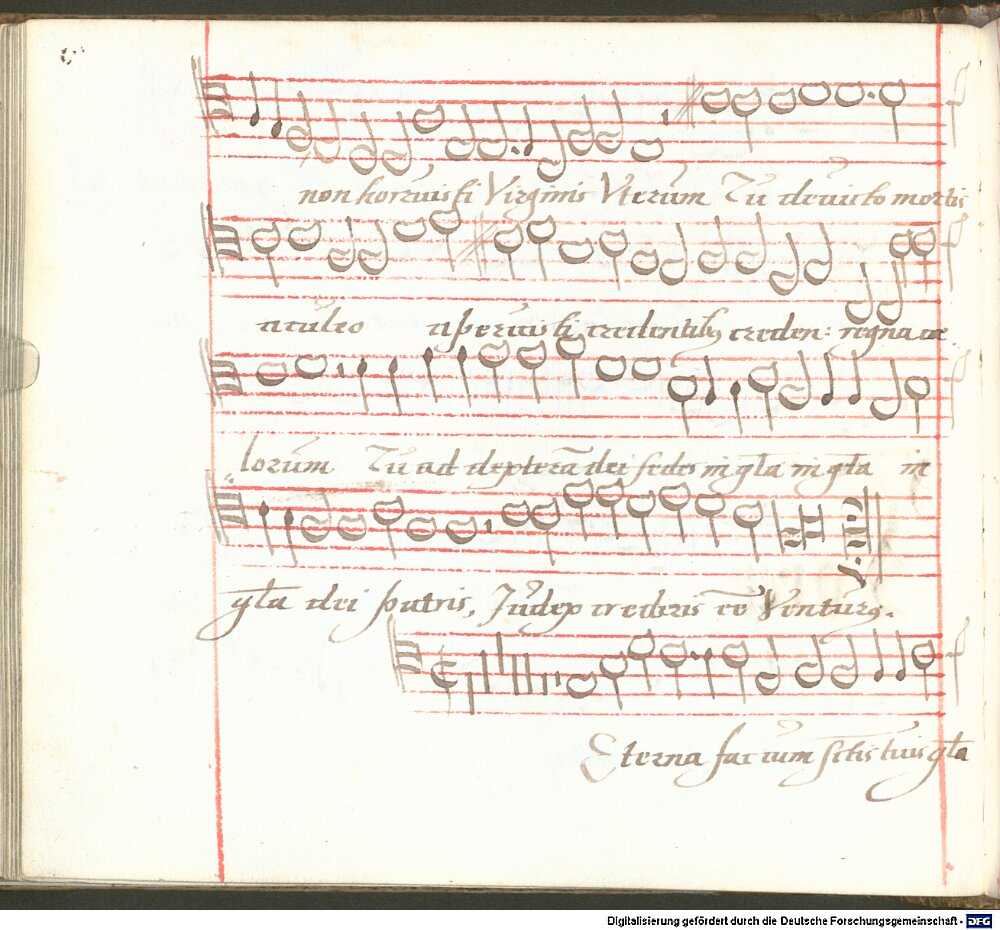 non horruisti Virginis Vterum Tu deuicto mortis
aculeo aperuisti credentibus creden: regna cæ
lorum Tu ad dexterã dei sedes in gl̃a in gl̃a in
gl̃a dei patris, Judex crederis eẽ Venturus.
Eterna fac cum sctis tuis gl̃a
Digitalisierung gefördert durch die Deutsche Forschungsgemeinschaft - DFG